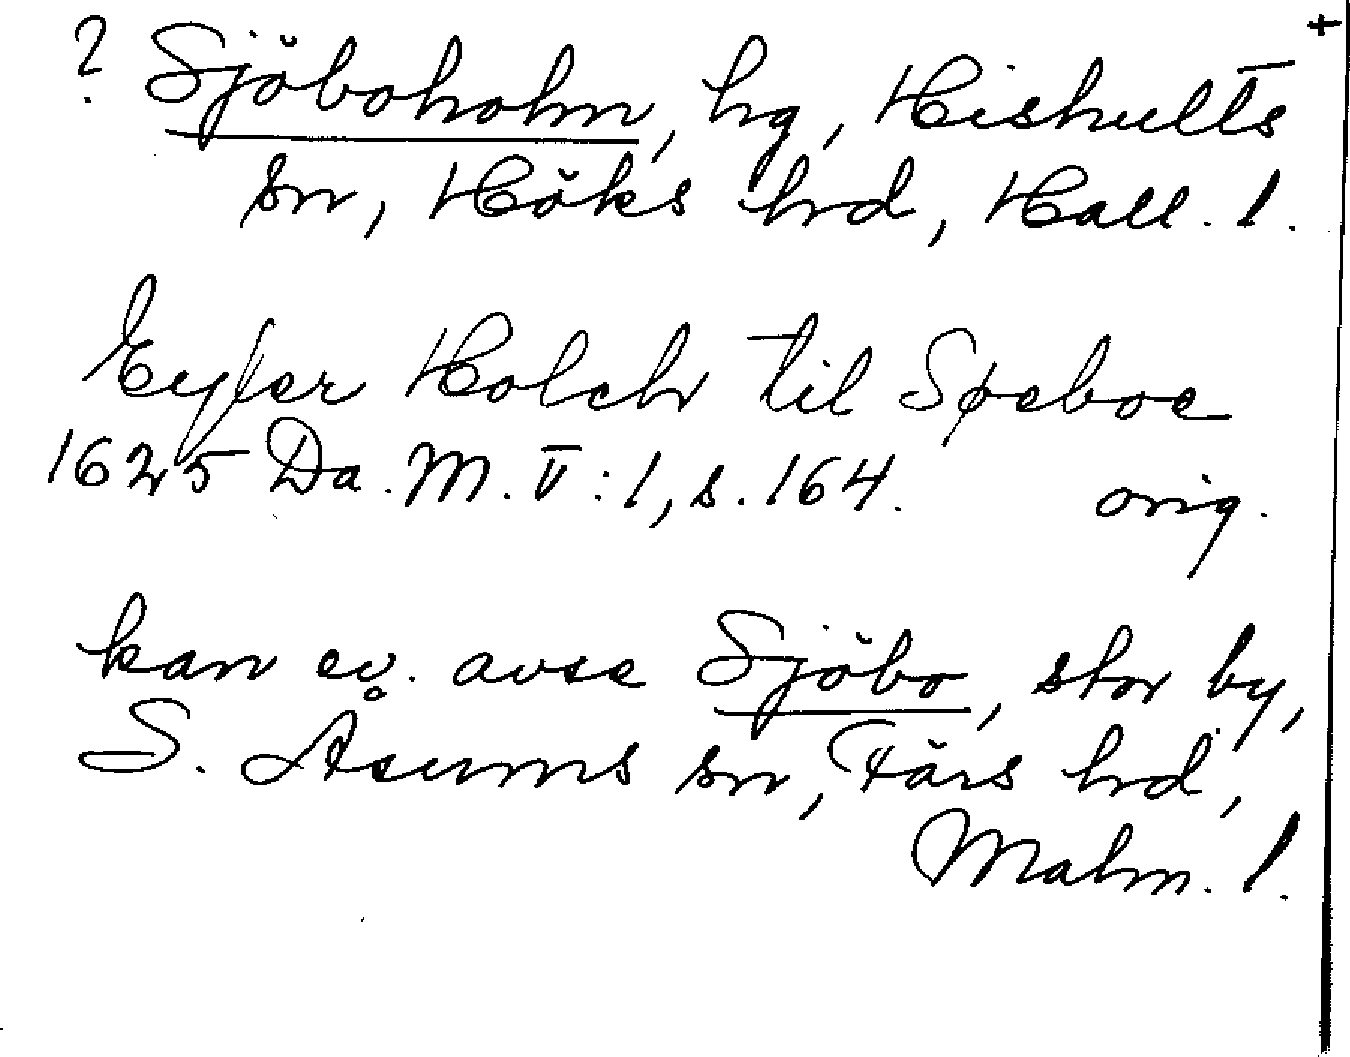 ? Sjöboholm, hg, Hishults +
sn, Höks hrd, Hall. l.
Eyler Holck til Søeboe
1625 Da. M. V:1, s. 164. orig.
kan ev. avse Sjöbo, stor by,
S. Åsums sn, Färs hrd,
Malm. l.